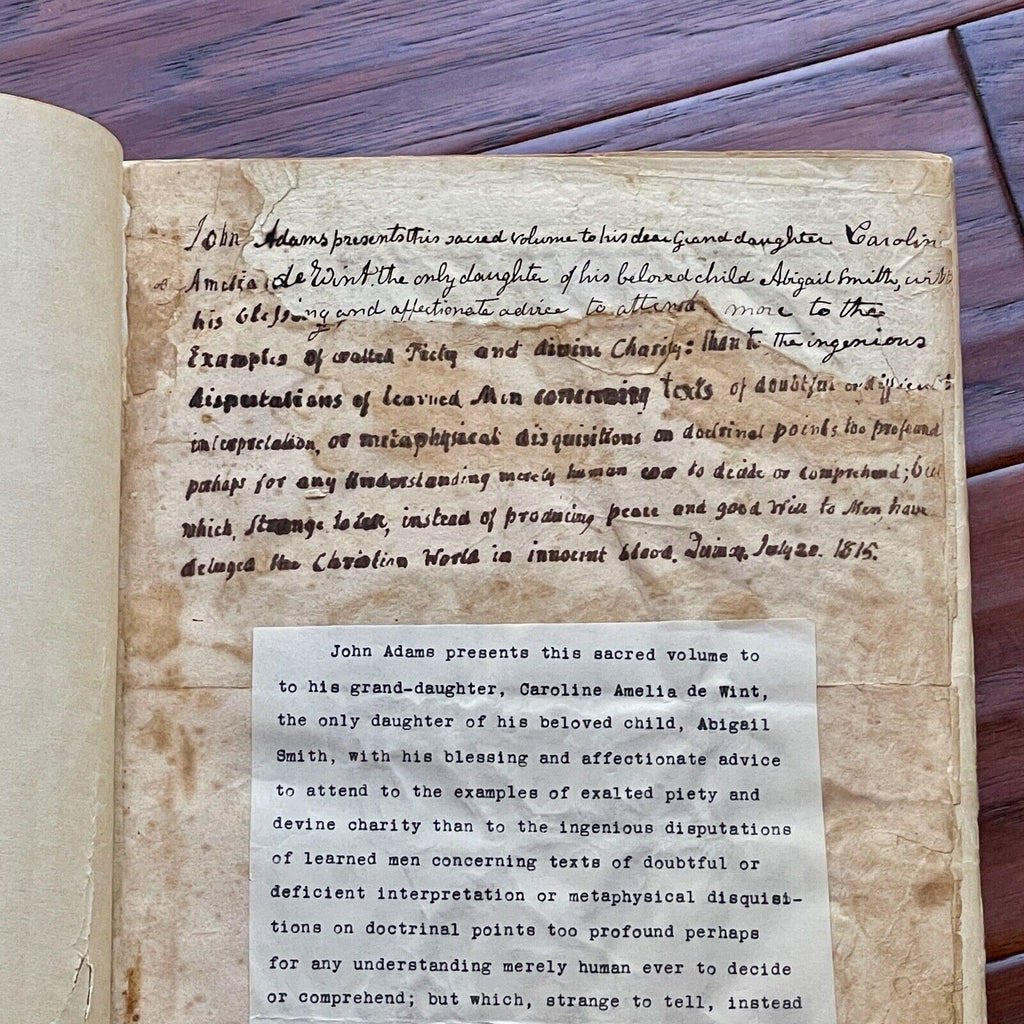 John Adams presents this sacred volume to his dear Grand daughter Carolin
Amelia de Wint. the only daughter of his beloved child Abigail Smith, with
his blessing and affectionate advice to attend more to the
Examples of exalted Piety and divine Charity: than to the ingenious
disputations of learned Men concerning texts of doubtful or difficult
interpretation, or metaphysical disquisitions on doctrinal points too profound
perhaps for any Understanding merely human ever to decide or comprehend; but
which, Strange to tell, instead of producing peace and good Will to Men, have
deluged the Christian World in innocent blood. Quincy. July 20. 1815.
John Adams presents this sacred volume to
to his grand-daughter, Caroline Amelia de Wint,
the only daughter of his beloved child, Abigail
Smith, with his blessing and affectionate advice
to attend to the examples of exalted piety and
devine charity than to the ingenious disputations
of learned men concerning texts of doubtful or
deficient interpretation or metaphysical disquisi-
tions on doctrinal points too profound perhaps
for any understanding merely human ever to decide
or comprehend; but which, strange to tell, instead